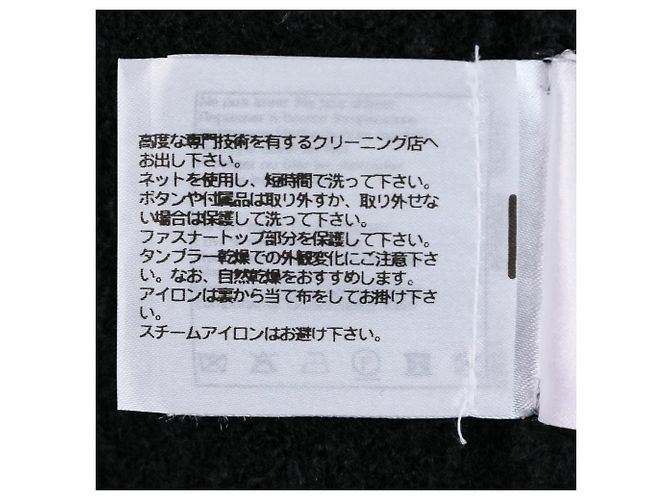 高度な専門技術を有するクリーニング店へ
お出し下さい。
ネットを使用し、短時間で洗って下さい。
ボタンや付属品は取り外すか、取り外せな
い場合は保護して洗って下さい。
ファスナートップ部分を保護して下さい。
タンブラー乾燥での外観変化にご注意下さ
い。なお、自然乾燥をおすすめします。
アイロンは裏から当て布をしてお掛け下さ
い。
スチームアイロンはお避け下さい。